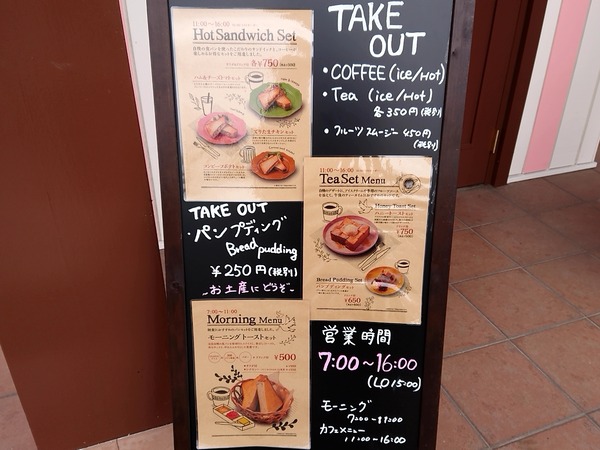 11:00～16:00
Hot Sandwich Set
各¥750
ハム&チーズトーストセット
TAKE OUT
・COFFEE (ice/Hot)
・Tea (ice/Hot)
各350円(税別)
・フルーツスムージー 450円
(税別)
11:00～16:00
Tea Set Menu
Honey Toast Set
ハニートーストセット
¥750
Bread Pudding Set
パンプディングセット
¥650
TAKE OUT
・パンプディング
Bread pudding
¥250円(税別)
お土産にどうぞ
7:00～11:00
Morning Menu
モーニングトーストセット
¥500
営業時間
7:00～16:00
(LO 15:00)
モーニング
7:00～11:00
カフェメニュー
11:00～16:00